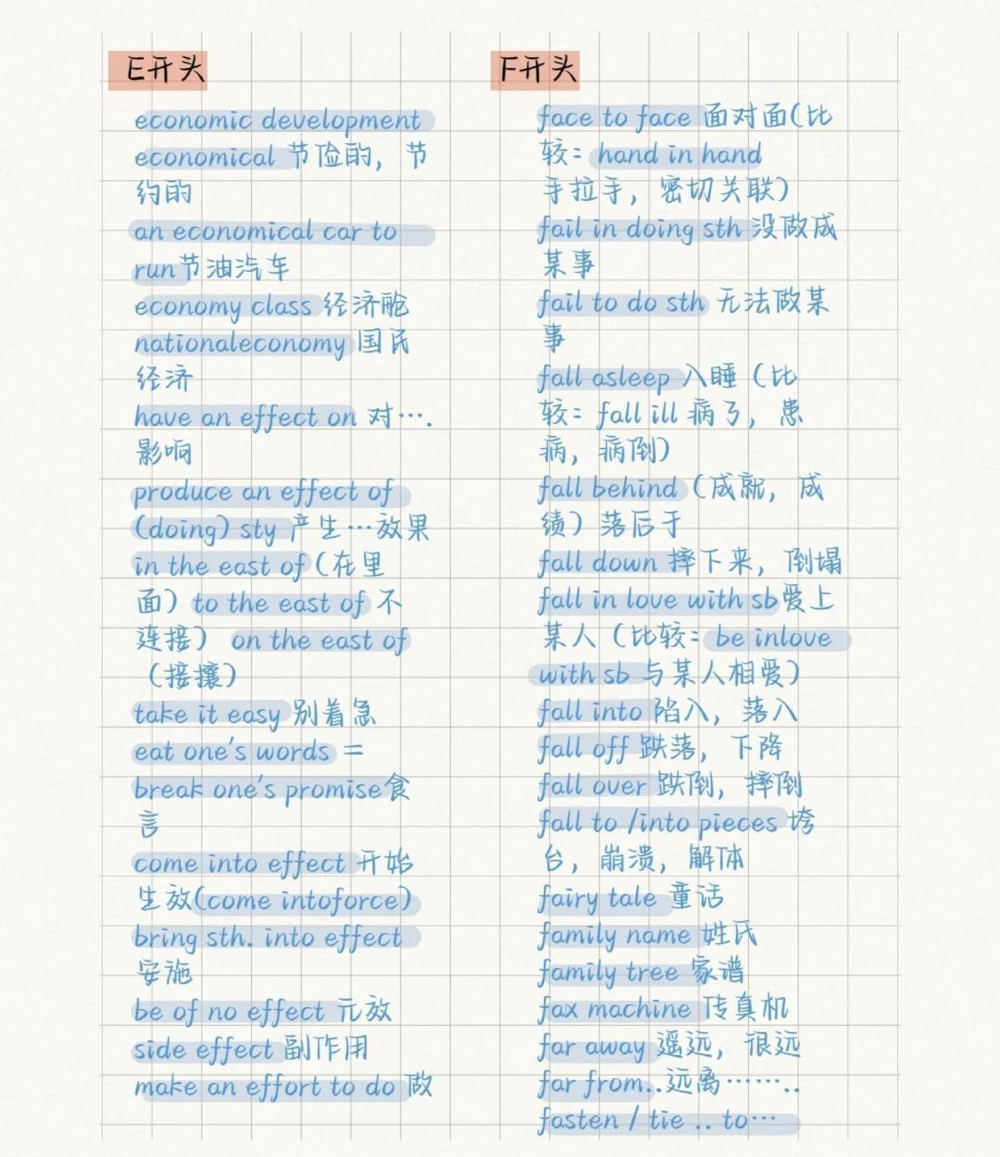 E开头
economic development
economical 节俭的，节
约的
an economical car to
run节油汽车
economy class 经济舱
nationaleconomy 国民
经济
have an effect on 对….
影响
produce an effect of
(doing) sty 产生…效果
in the east of (在里
面) to the east of 不
连接) on the east of
（接攘）
take it easy 别着急
eat one's words =
break one's promise食
言
come into effect 开始
生效(come intoforce)
bring sth. into effect
安施
be of no effect 元效
side effect 副作用
make an effort to do 做
F开头
face to face 面对面(比
较: hand in hand
手拉手，密切关联)
fail in doing sth 没做成
某事
fail to do sth 无法做某
事
fall asleep 入睡（比
较: fall ill 病了，患
病，病倒)
fall behind (成就，成
绩）落后于
fall down 摔下来，倒塌
fall in love with sb爱上
某人（比较: be inlove
with sb 与某人相爱)
fall into 陷入，落入
fall off 跌落，下降
fall over 跌倒，摔倒
fall to /into pieces 垮
台，崩溃，解体
fairy tale 童话
family name 姓氏
family tree 家谱
fax machine 传真机
far away 遥远，很远
far from..远离……..
fasten / tie .. to…